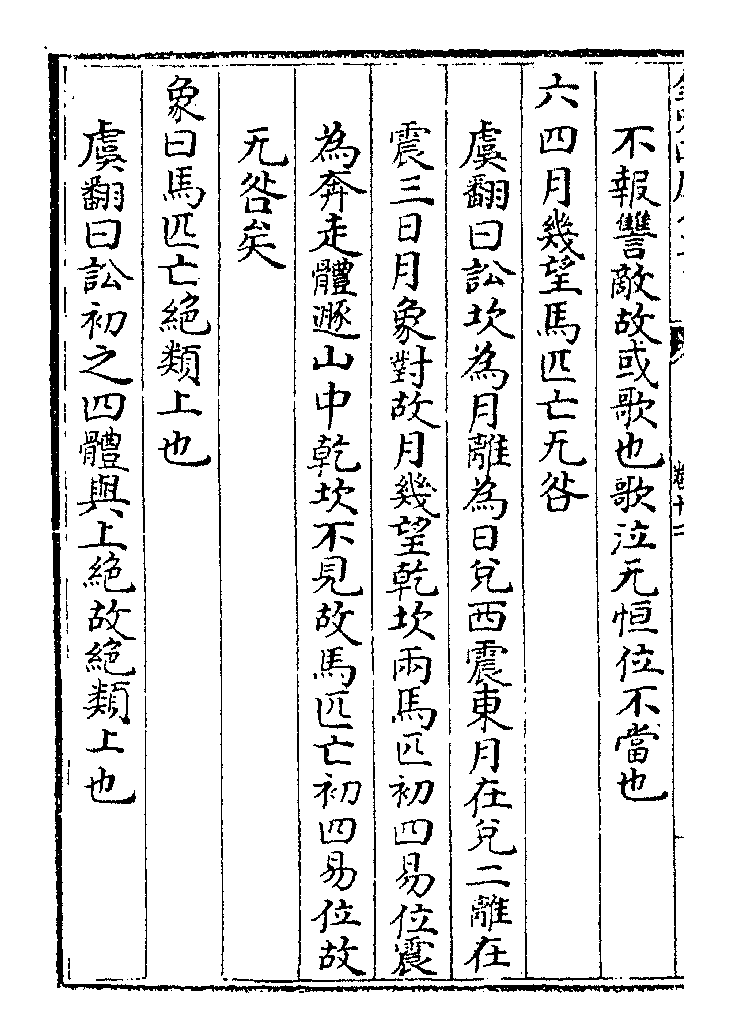 不報讐敵故或歌也歌泣无恒位不當也
六四月幾望馬匹亡无咎
虞翻曰訟坎為月離為日兌西震東月在兌二離在
震三日月象對故月幾望乾坎兩馬匹初四易位震
為奔走體遯山中乾坎不見故馬匹亡初四易位故
无咎矣
象曰馬匹亡絕類上也
虞翻曰訟初之四體與上絕故絕類上也